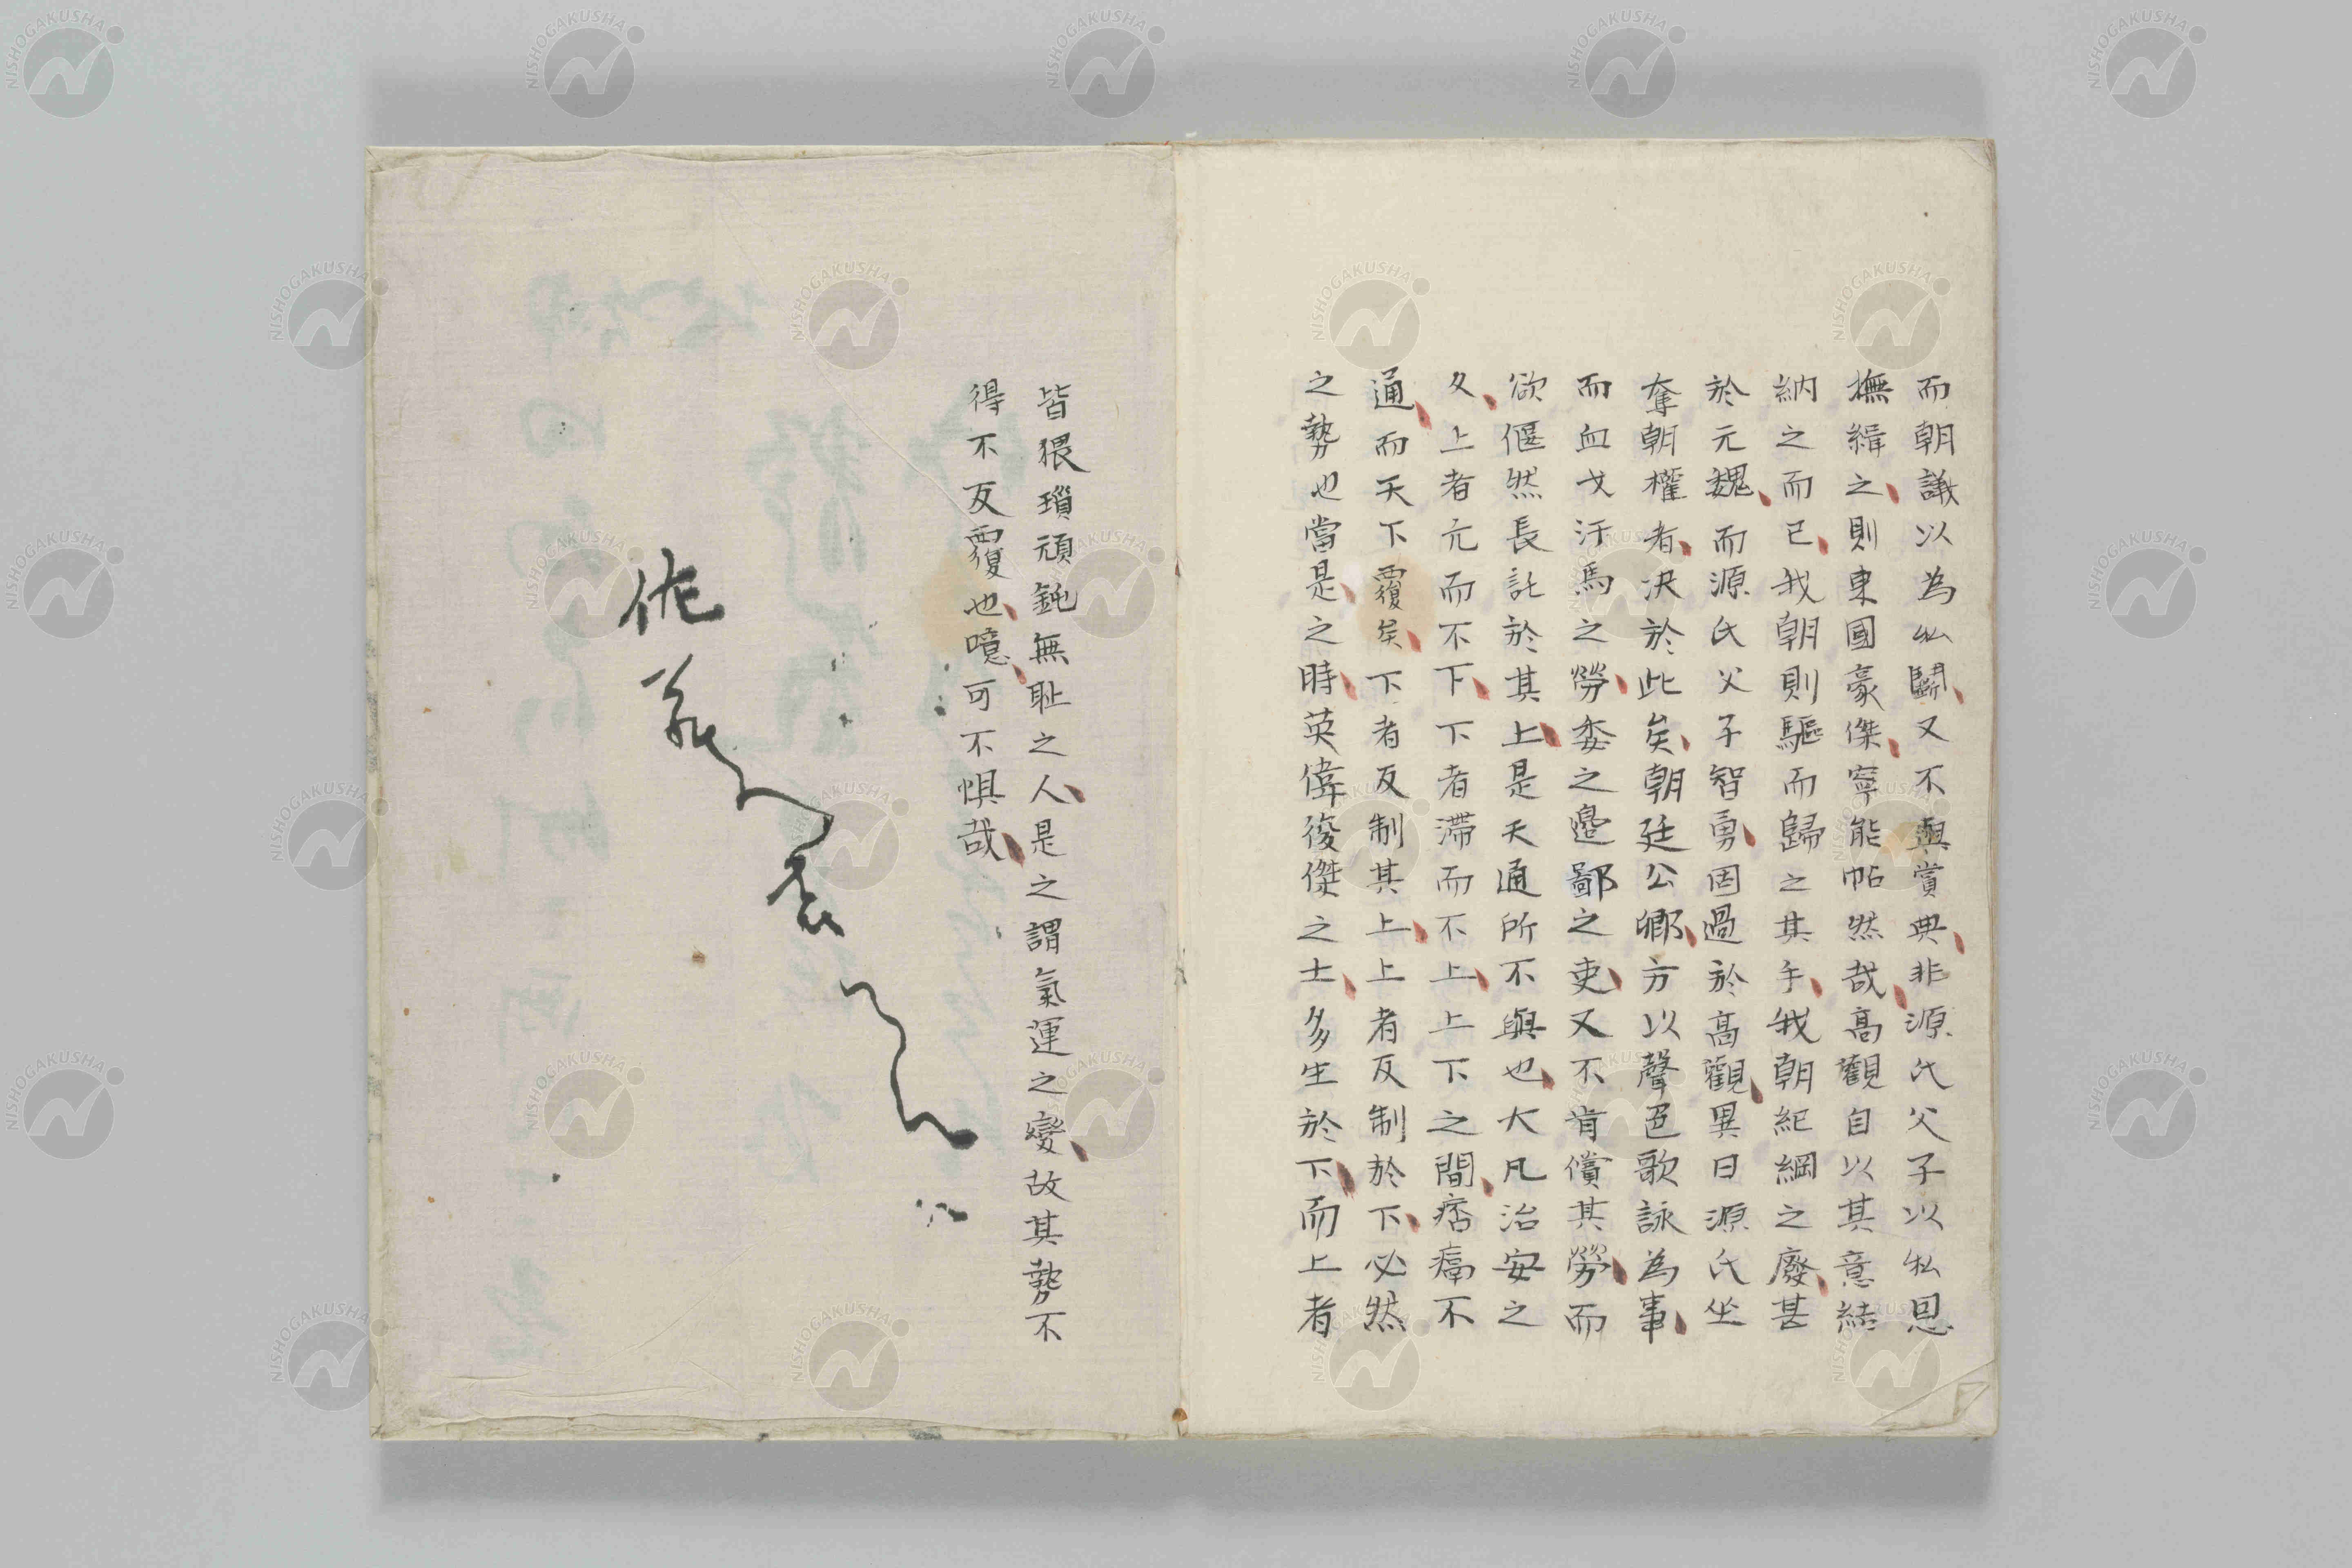 而朝議以為私鬪又不與賞典非源氏父子以私恩
撫緝之則東國豪傑寧能帖然哉高觀自以其意結
納之而已我朝則驅而歸之其手我朝紀綱之廢甚
於元魏而源氏父子智勇固過於高觀異日源氏坐
奪朝權者决於此矣朝廷公卿方以聲色歌詠為事
而血戈汗馬之勞委之邊鄙之吏又不肯償其勞而
欲偃然長託於其上是天通所不與也大凡治安之
久上者亢而不下下者滯而不上上下之間痞瘴不
通而天下覆矣下者反制其上上者反制於下必然
之勢也當是之時英偉俊傑之士多生於下而上者
皆猥瑣頑鈍無恥之人是之謂氣運之變故其勢不
得不反覆也噫可不惧哉
NISHOGAKUSHA